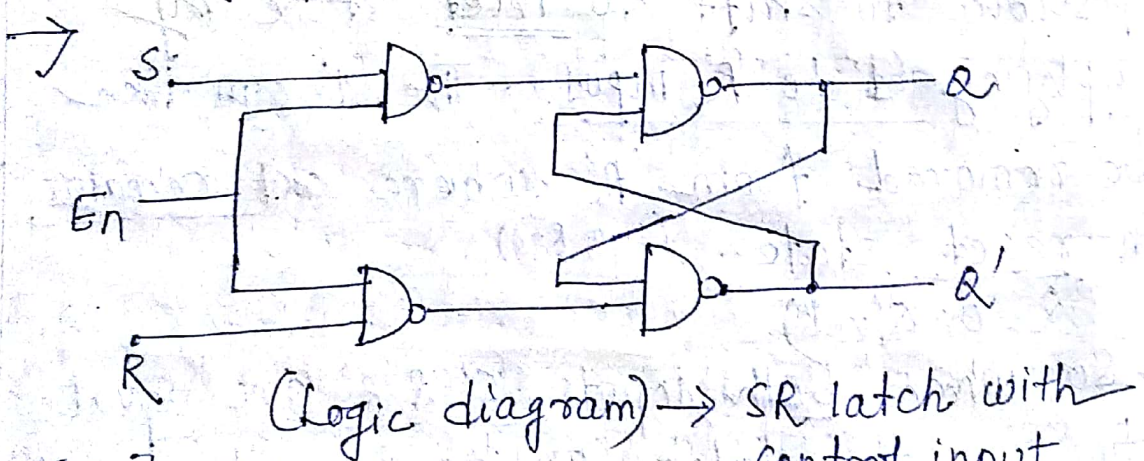 S
Q
En
Q'
R
(Logic diagram) → SR latch with
control input